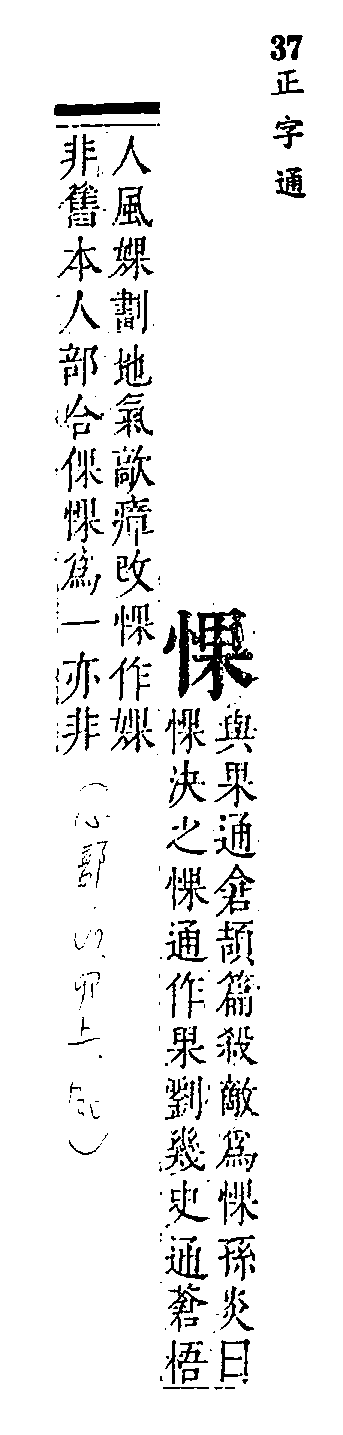 37
正字通
惈
與果通倉頡篇殺敵為惈孫炎曰
惈決之惈通作果劉幾史通蒼梧
人風婐劃地氣敵瘴改惈作婐
非舊本人部合倮惈為一亦非